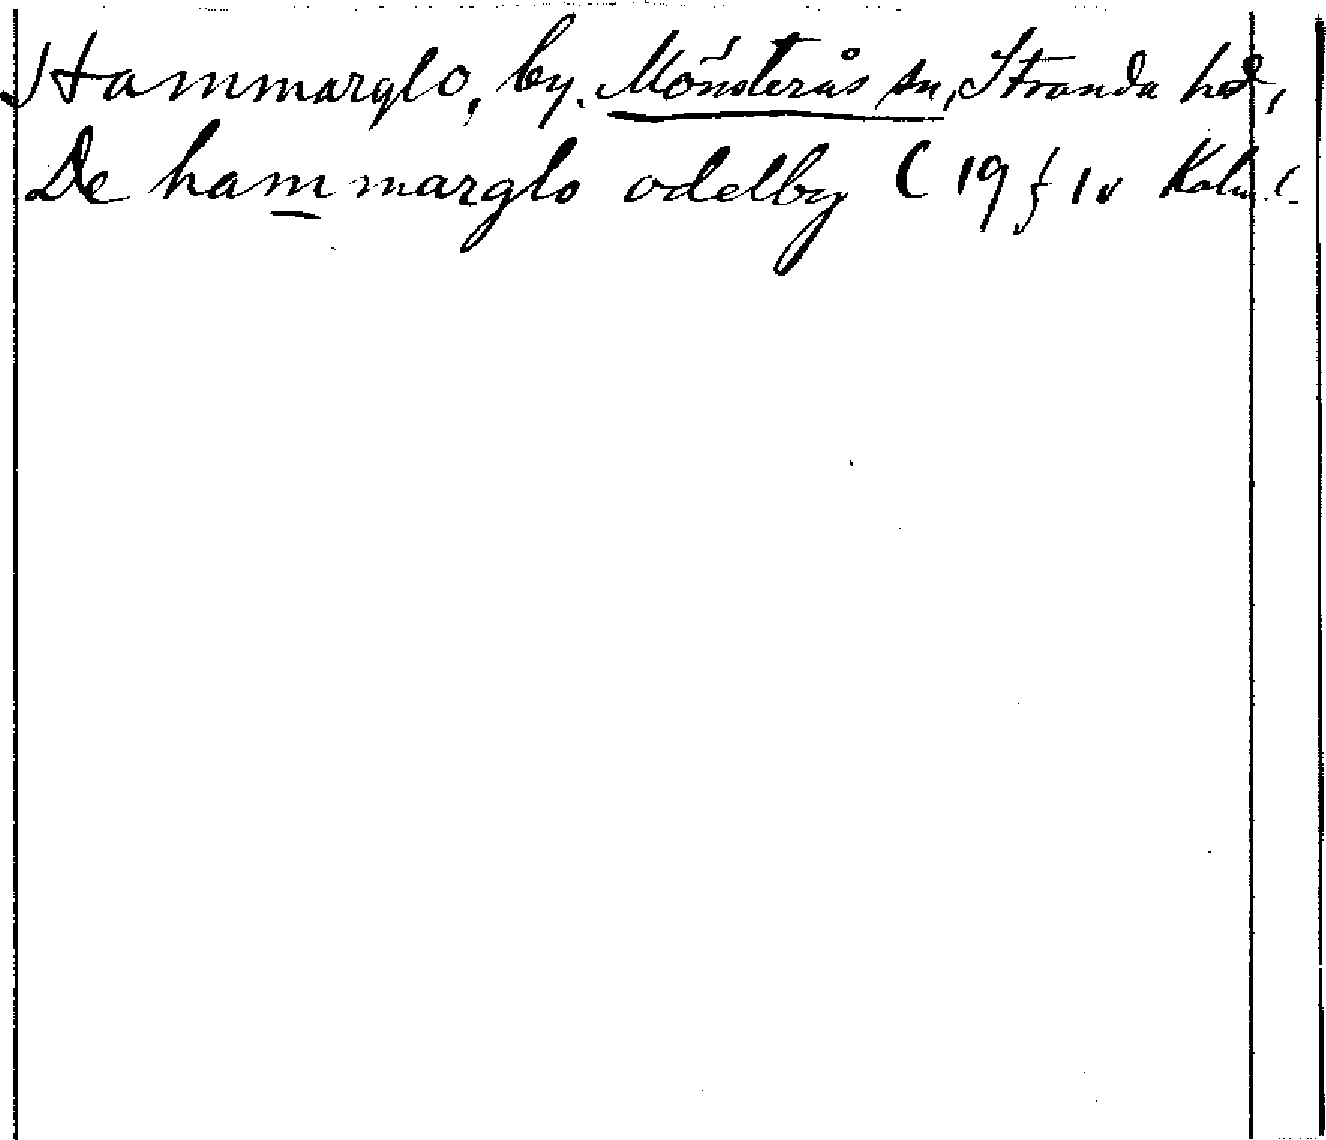 Hammarglo, by. Mönsterås sn, Stranda hd,
De hammarglo odelby ( 19 f 1v Kalm. l.